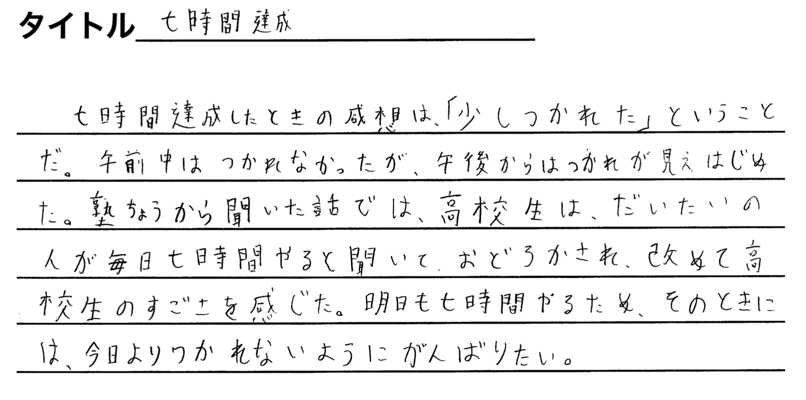 タイトル 七時間達成
七時間達成したときの感想は、「少しつかれた」ということ
だ。午前中はつかれなかったが、午後からはつかれが見えはじめ
た。塾ちょうから聞いた話では、高校生は、だいたいの
人が毎日七時間やると聞いて、おどろかされ、改めて高
校生のすごさを感じた。明日も七時間やるため、そのときに
は、今日よりつかれないようにがんばりたい。